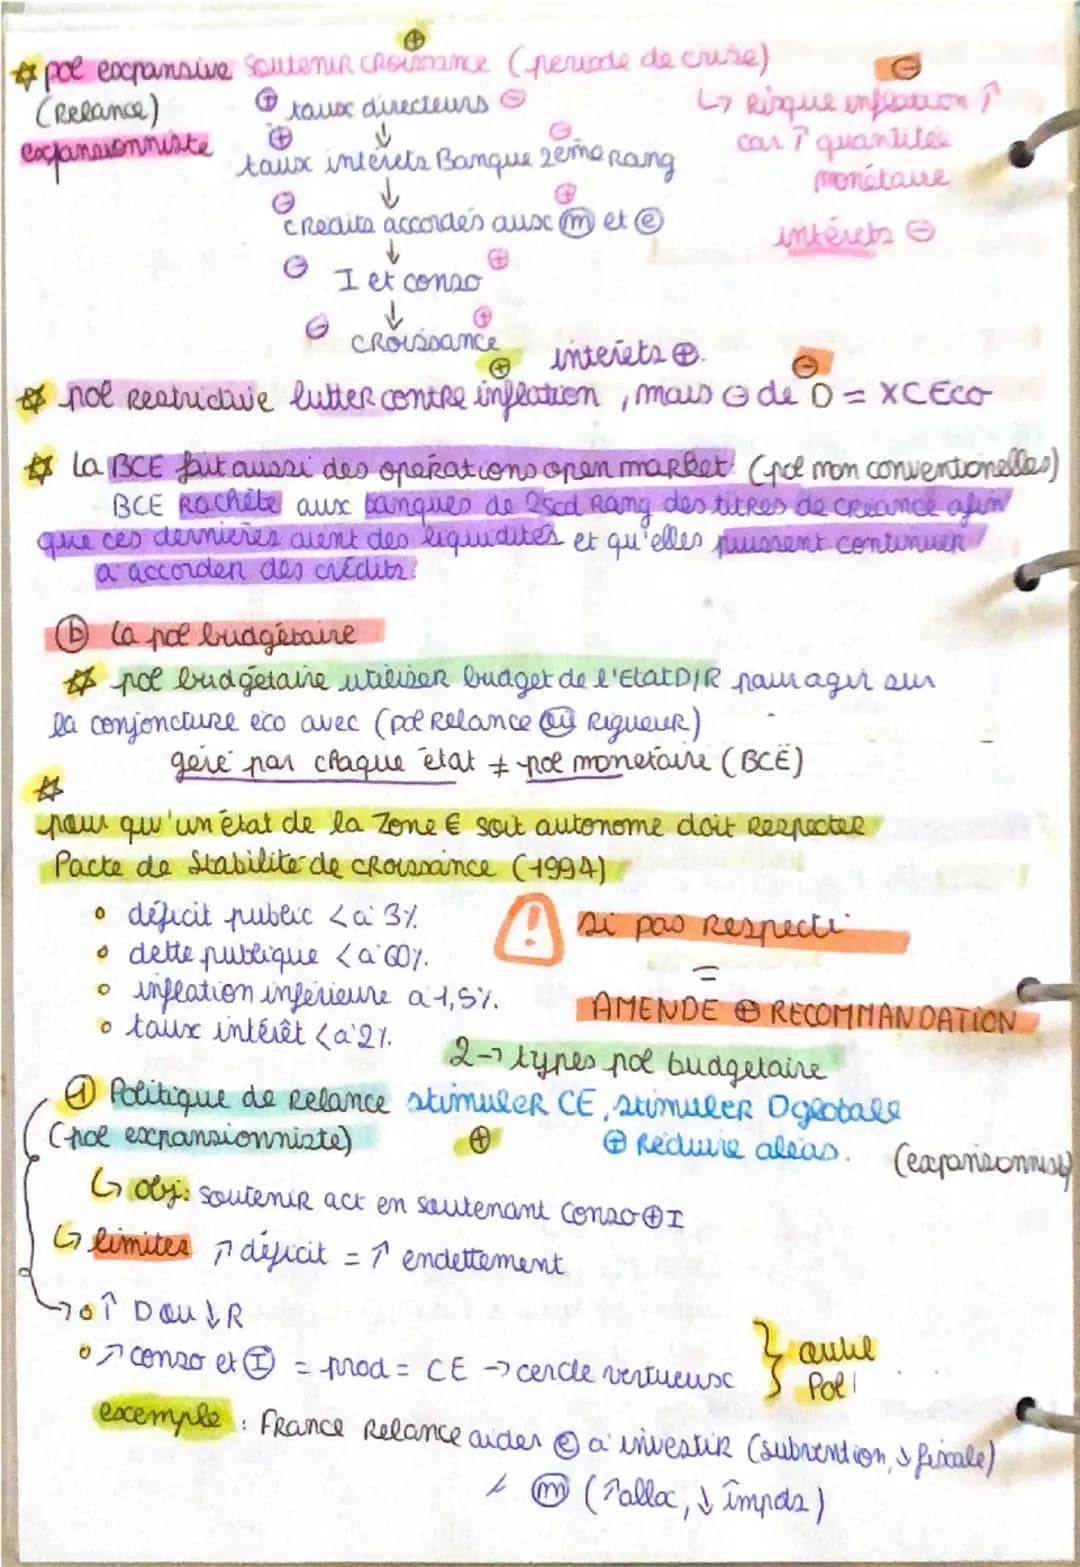 ⊕
pol expansive soutenir croissance (periode de crise) ⊖
(Relance) ⊕ taux directeurs ⊖ ↳ Risque inflation ↑
↓ car ↑ quantitée
expansionniste ⊕ taux intérets Banque 2eme Rang ⊖ monétaire
↓
⊖ credits accordés aux ⓜ et ⓔ ⊕ intérets ⊖
↓
⊖ I et conso ⊕
↓
⊖ CRoissance ⊕
interets ⊕.
⊕ ⊖
pol Restrictive lutter contre inflation, mais ⊖ de D = XCEco
La BCE fait aussi des opérations open market. (pol non conventionelles)
BCE Rachète aux banques de 2scd Rang des titres de créance afin
que ces dernières aient des liquidités et qu'elles puissent continuer
a accorder des crédits.
ⓑ La pol budgétaire
pol budgétaire utiliser budget de l'Etat D/R pour agir sur
la conjoncture éco avec (pol Relance ou Rigueur)
géré par chaque état ≠ pol monetaire (BCE)
pour qu'un état de la Zone € soit autonome doit Respecter
Pacte de Stabilité de CRoissance (1994)
∘ déficit public < à 3%
∘ dette publique < à 60%.
∘ inflation inférieure à 1,5%.
∘ taux intérêt < à 2%.
! si pas Respecti
=
AMENDE ⊕ RECOMMANDATION
2→ types pol budgetaire
① Politique de Relance stimuler CE, stimuler D globale
(pol expansionniste) ⊕ ⊕ Réduire aléas. (expansionnist)
↳ obj: soutenir act en soutenant conso ⊕ I
↳ limites ↗ déficit = ↑ endettement
→∘ ↑ D ou ↓ R
∘ ↗ conso et Ⓘ = prod = CE → cercle vertueux } outil
Pol
exemple : FRance Relance aider ⓔ a investir (subvention, ↓ fiscale)
ⓜ (↑ alloc, ↓ impôts)